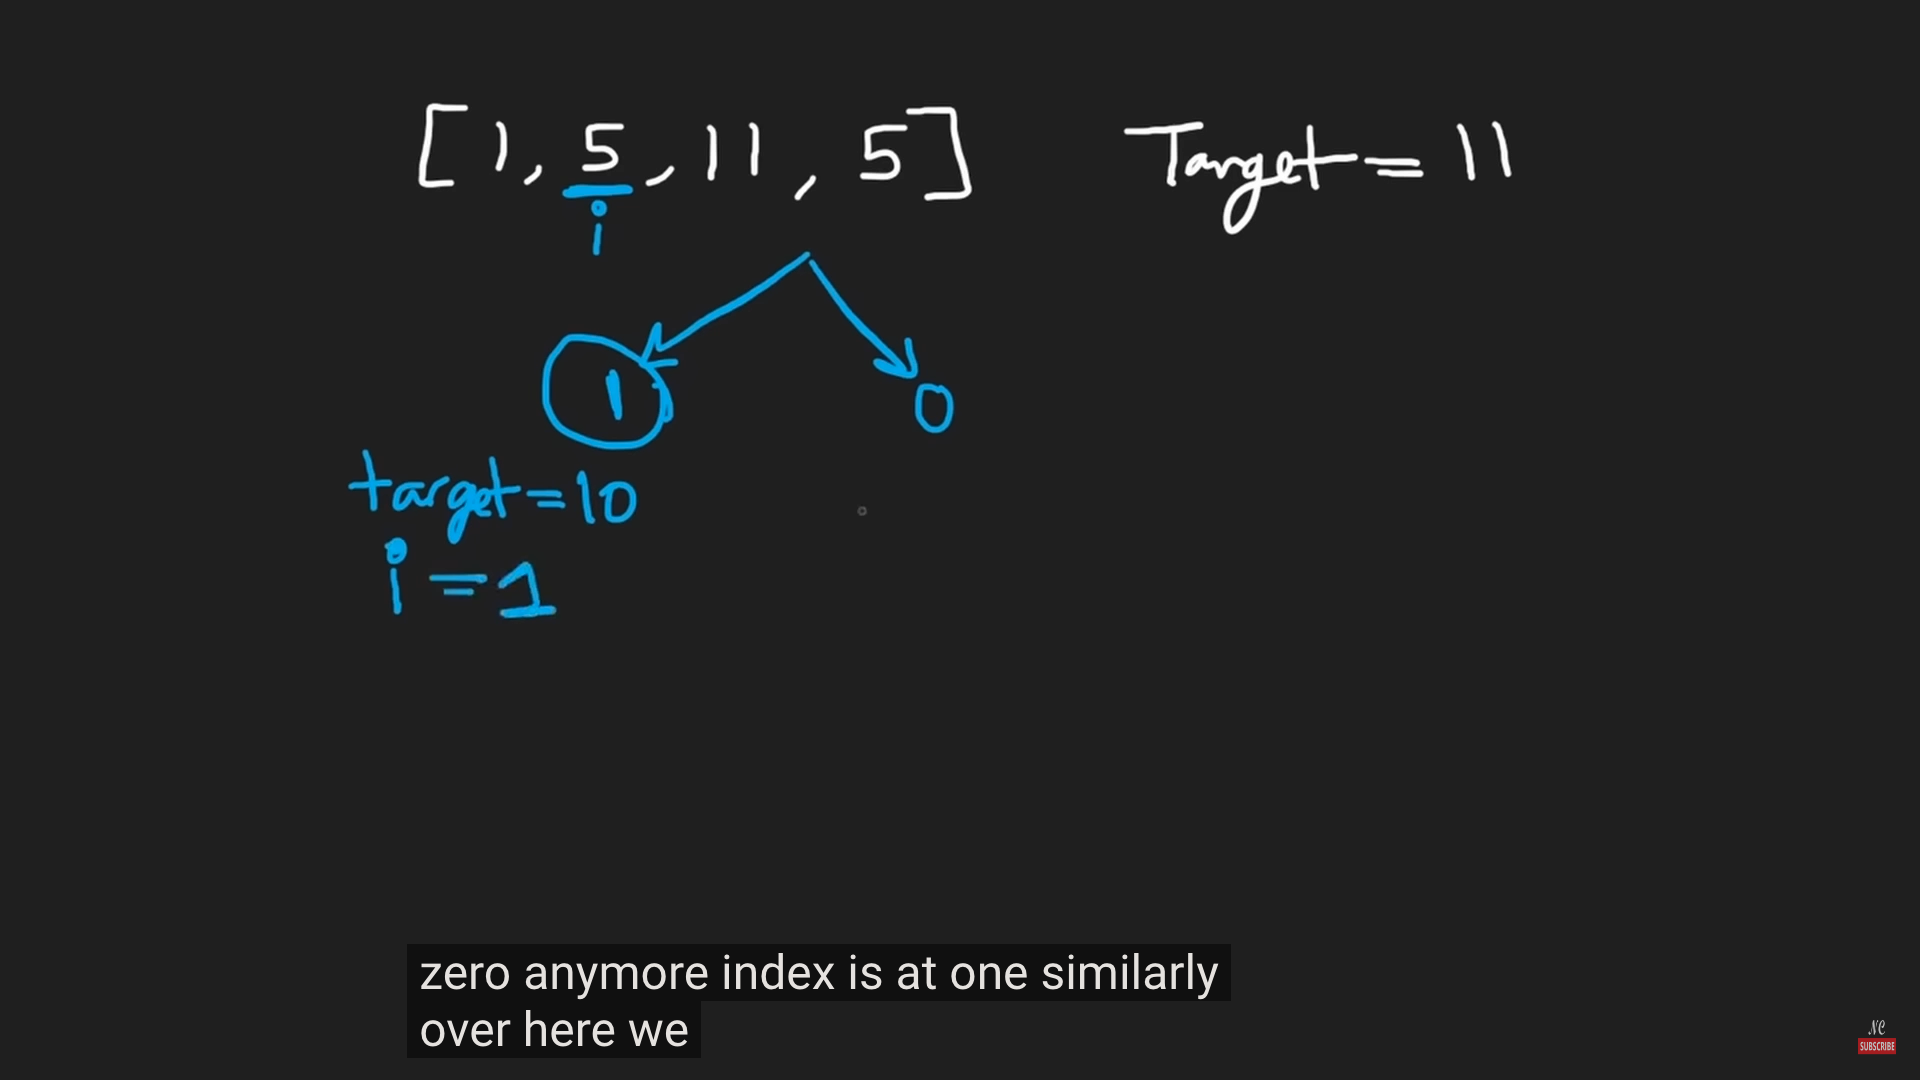 [1, 5, 11, 5] Target = 11
i
1 0
target=10
i=1
zero anymore index is at one similarly
over here we
NC
SUBSCRIBE